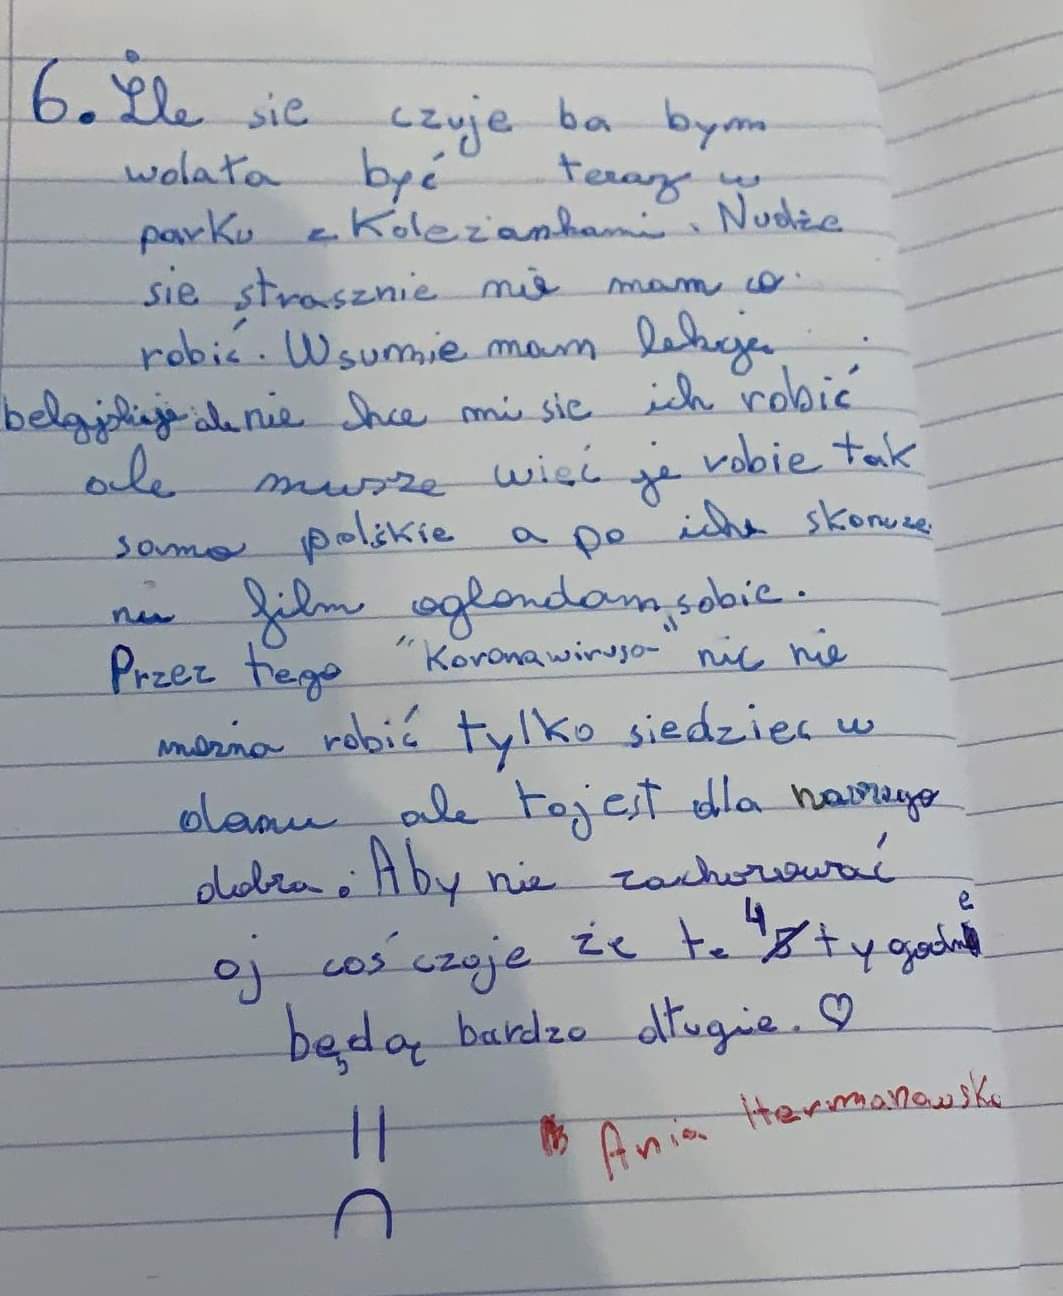 6. Źle sie czuje ba bym
wolała być teraz w
parku z Koleziankami. Nudże
sie strasznie nie mam co
robić. Wsumie mam lekcje
ale nie chce mi sie ich robić
ale musze wieć je robie tak
samo polskie a po ich skoncze
niu film oglondam sobie.
Przez tego "Koronawirusa" nic nie
mozna robić tylko siedziec w
domu ale to jest dla naszego
dobra. Aby nie zachorować
oj coś czuje że te 4 tygodnie
będą bardzo długie. ♡
Ania Hermanowska